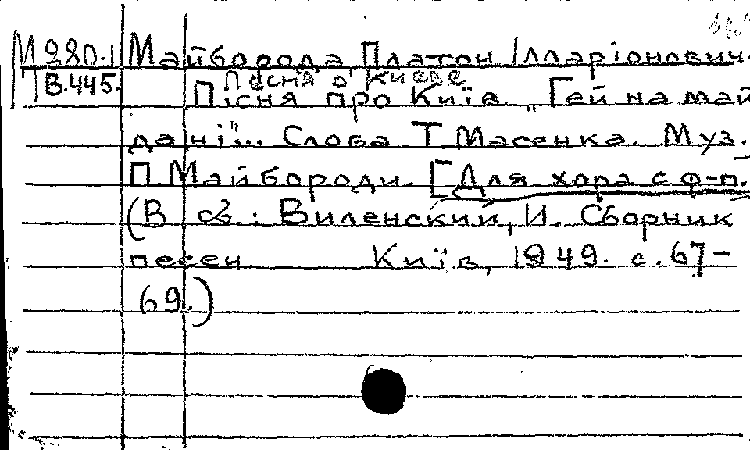 М980.1 Майборода Платон Ілларіонович.
Песня о Києве
В.445. Пісня про Київ. „Гей на май
дані"... Слова Т. Масенка. Муз.
П. Майбороди. [Для хора с ф-п.
(В сб: Виленский, И. Сборник
песен Київ, 1949. с. 67-
69.)